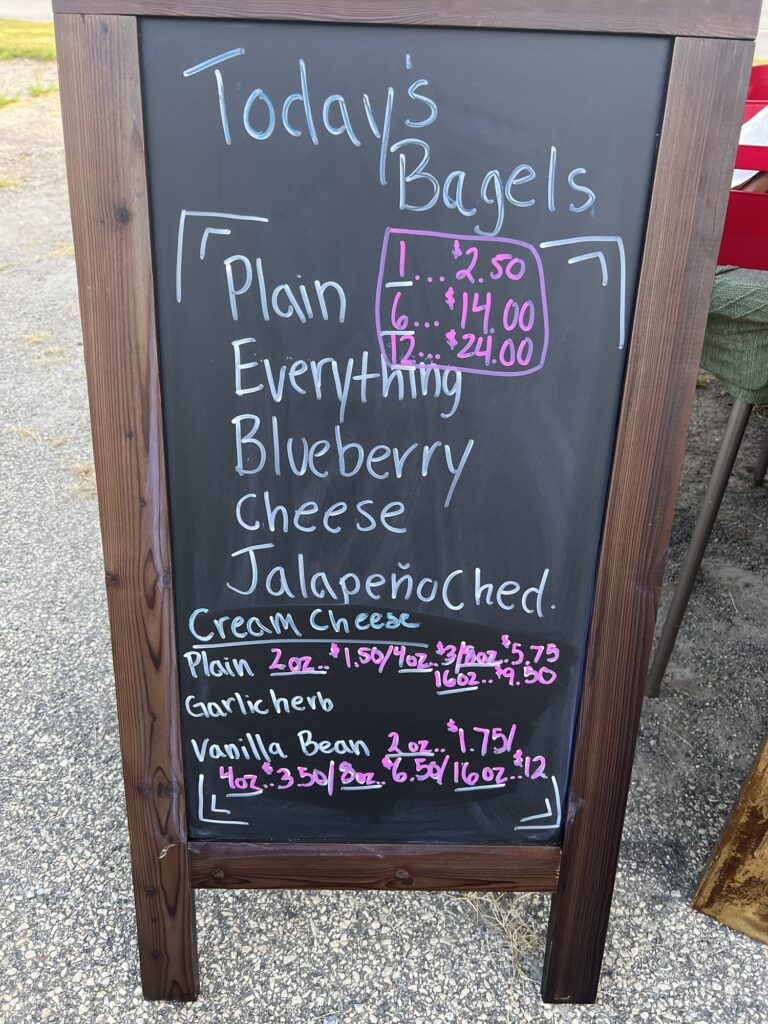 Today's
Bagels
Plain
1... $2.50
6... $14.00
12... $24.00
Everything
Blueberry
Cheese
Jalapeño Ched.
Cream Cheese
Plain 2oz.. $1.50/4oz.. $3/8oz.. $5.75
16oz.. $9.50
Garlic herb
Vanilla Bean 2oz.. $1.75/
4oz.. $3.50/8oz.. $6.50/16oz.. $12